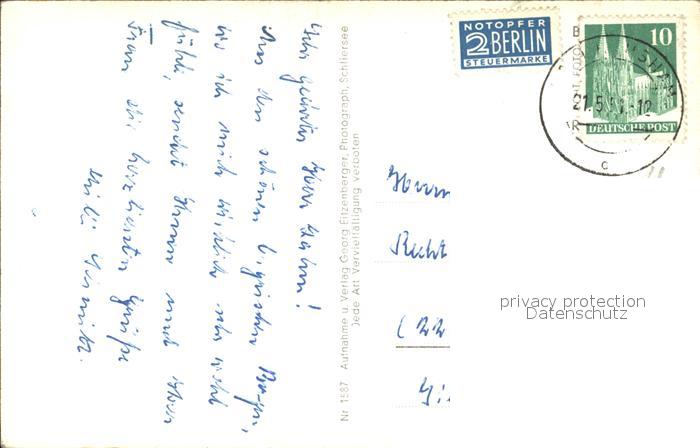 Sehr geehrter Herr Hahn!
Aus den schönen bayrischen Bergen,
wo ich mich wirklich sehr wohl
fühle, sendet Ihnen und Ihrer
Frau die herzlichsten Grüße
Nr 1587 Aufnahme u. Verlag Georg Eitzenberger, Photograph, Schliersee
Jede Art Vervielfältigung verboten
NOTOPFER
2 BERLIN
STEUERMARKE
10
DEUTSCHE POST
21.5.51.-12
c
Herrn
Recht
(22
privacy protection
Datenschutz